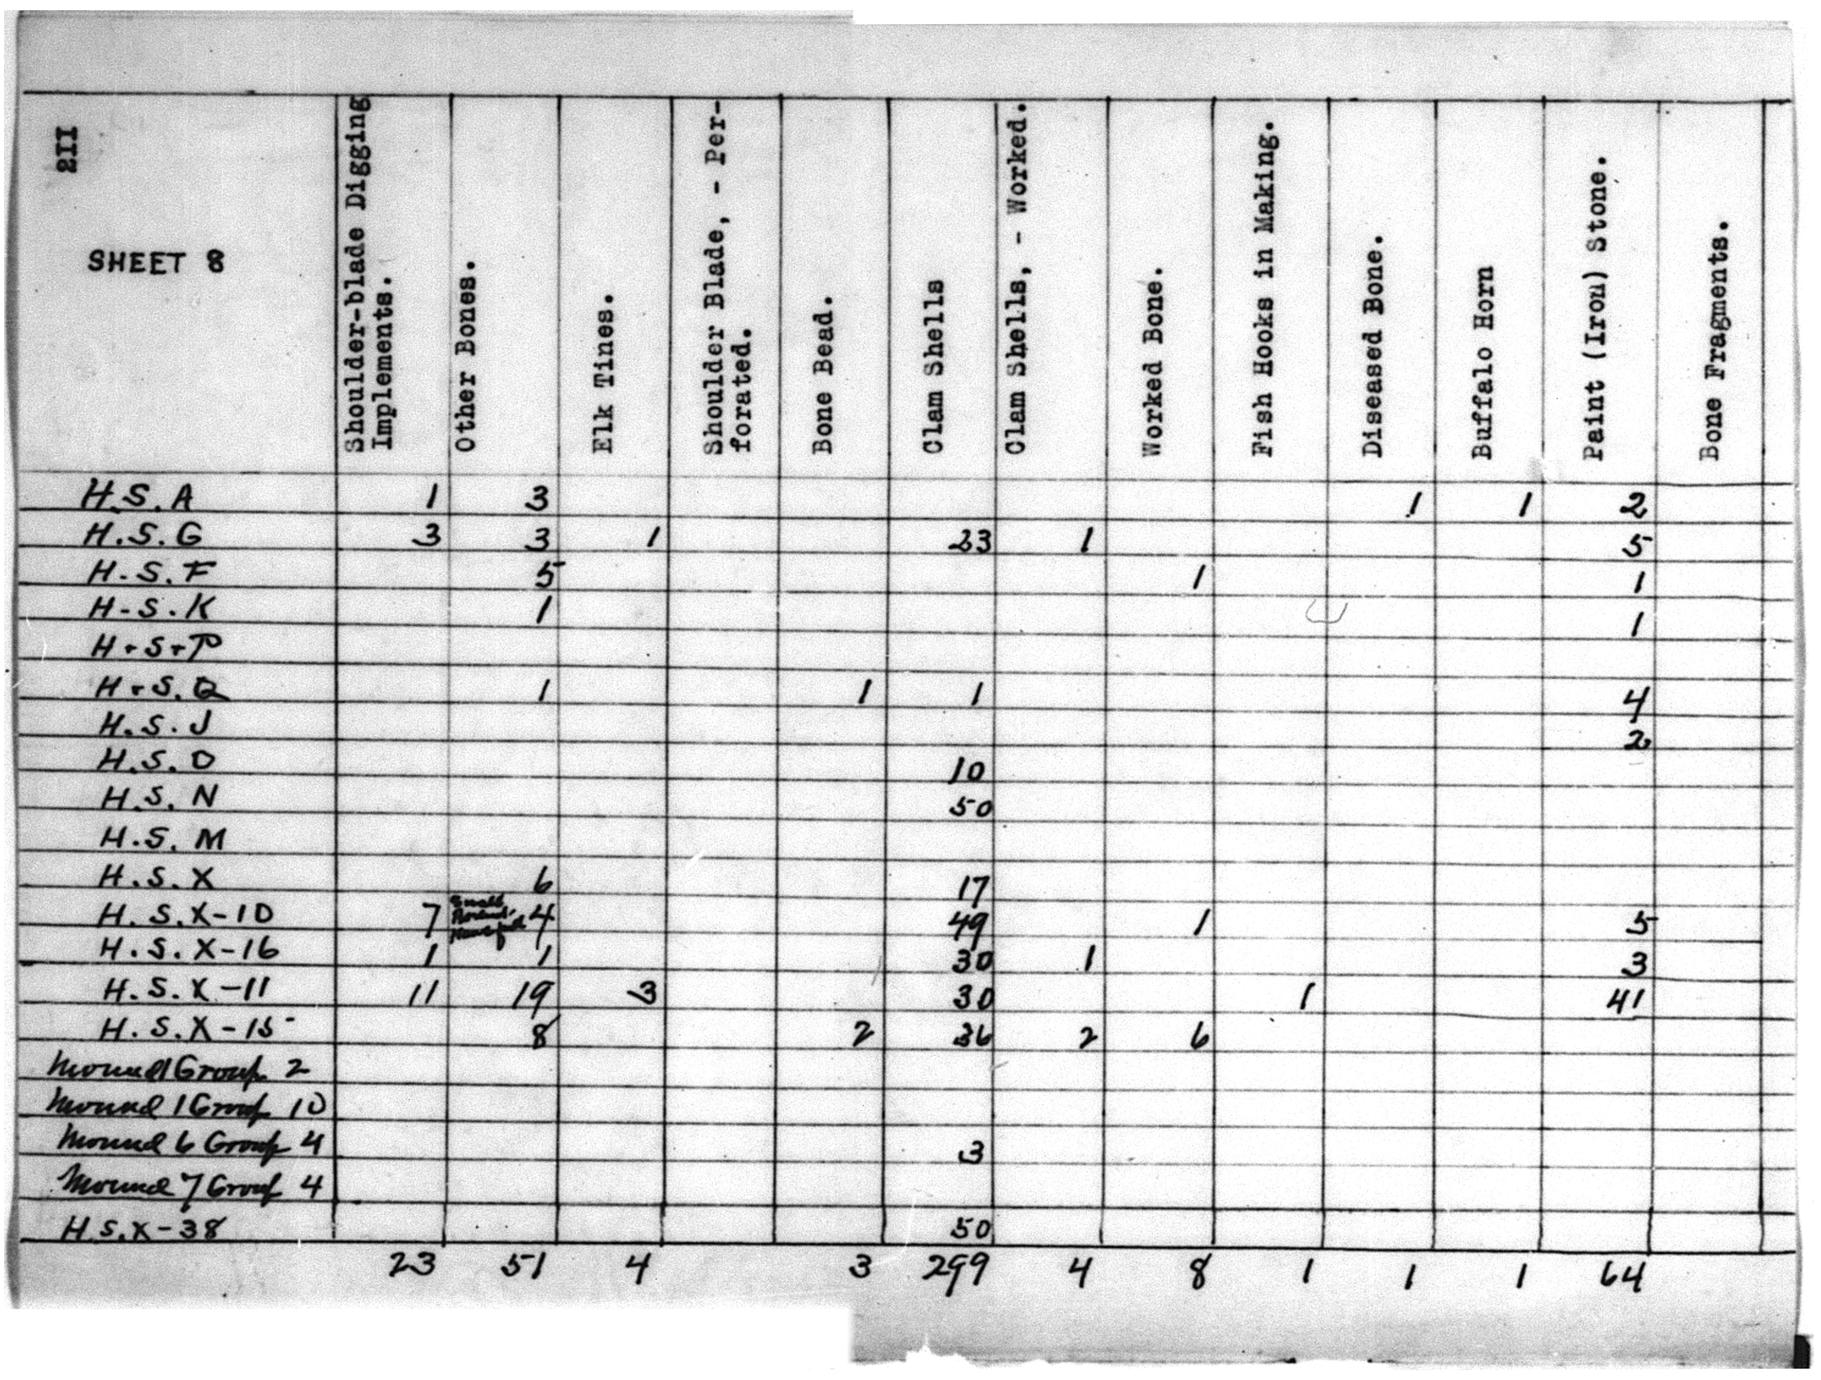 211
SHEET 8
Shoulder-blade Digging
Implements.
Other Bones.
Elk Tines.
Shoulder Blade, - Per-
forated.
Bone Bead.
Clam Shells
Clam Shells, - Worked.
Worked Bone.
Fish Hooks in Making.
Diseased Bone.
Buffalo Horn
Paint (Iron) Stone.
Bone Fragments.
H.S.A 1 3 1 1 2
H.S.G 3 3 1 23 1 5
H-S.F 5 1 1
H-S.K 1 1
H.S.P
H.S.Q 1 1 1 4
H.S.J 2
H.S.O 10
H.S.N 50
H.S.M
H.S.X 6 17
H.S.X-10 7 Small 4 49 1 5
H.S.X-16 1 1 30 1 3
H.S.X-11 11 19 3 30 1 41
H.S.X-15 8 2 36 2 6
Mound 1 Group 2
Mound 1 Group 10
Mound 6 Group 4 3
Mound 7 Group 4
H.S.X-38 50
23 51 4 3 299 4 8 1 1 1 64